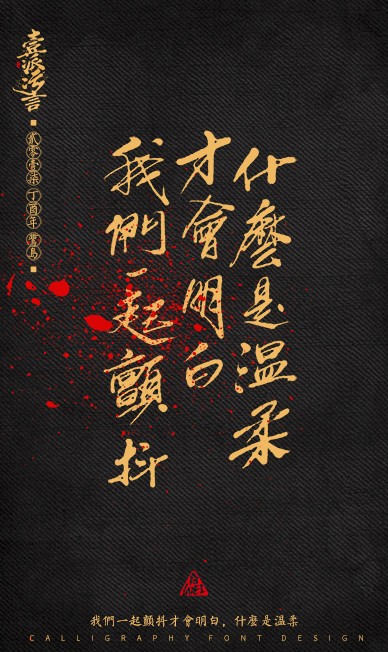 貳零壹柒 丁酉年
我們一起顫抖
才會明白
什麼是溫柔
我們一起顫抖才會明白，什麼是溫柔
CALLIGRAPHY FONT DESIGN